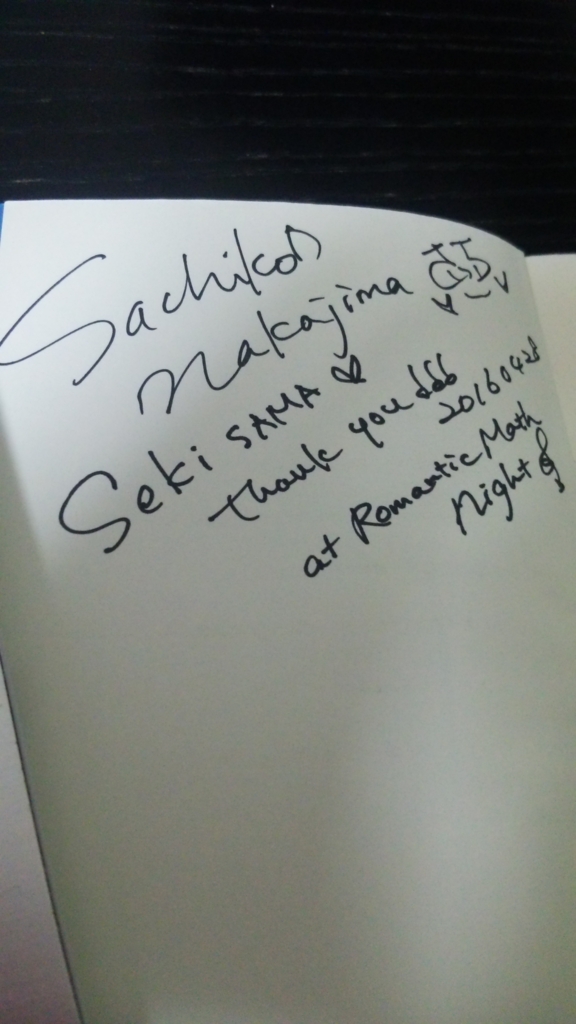 Sachiko
Nakajima
Seki SAMA ♡
Thank you
20160428
at Romantic Math
Night